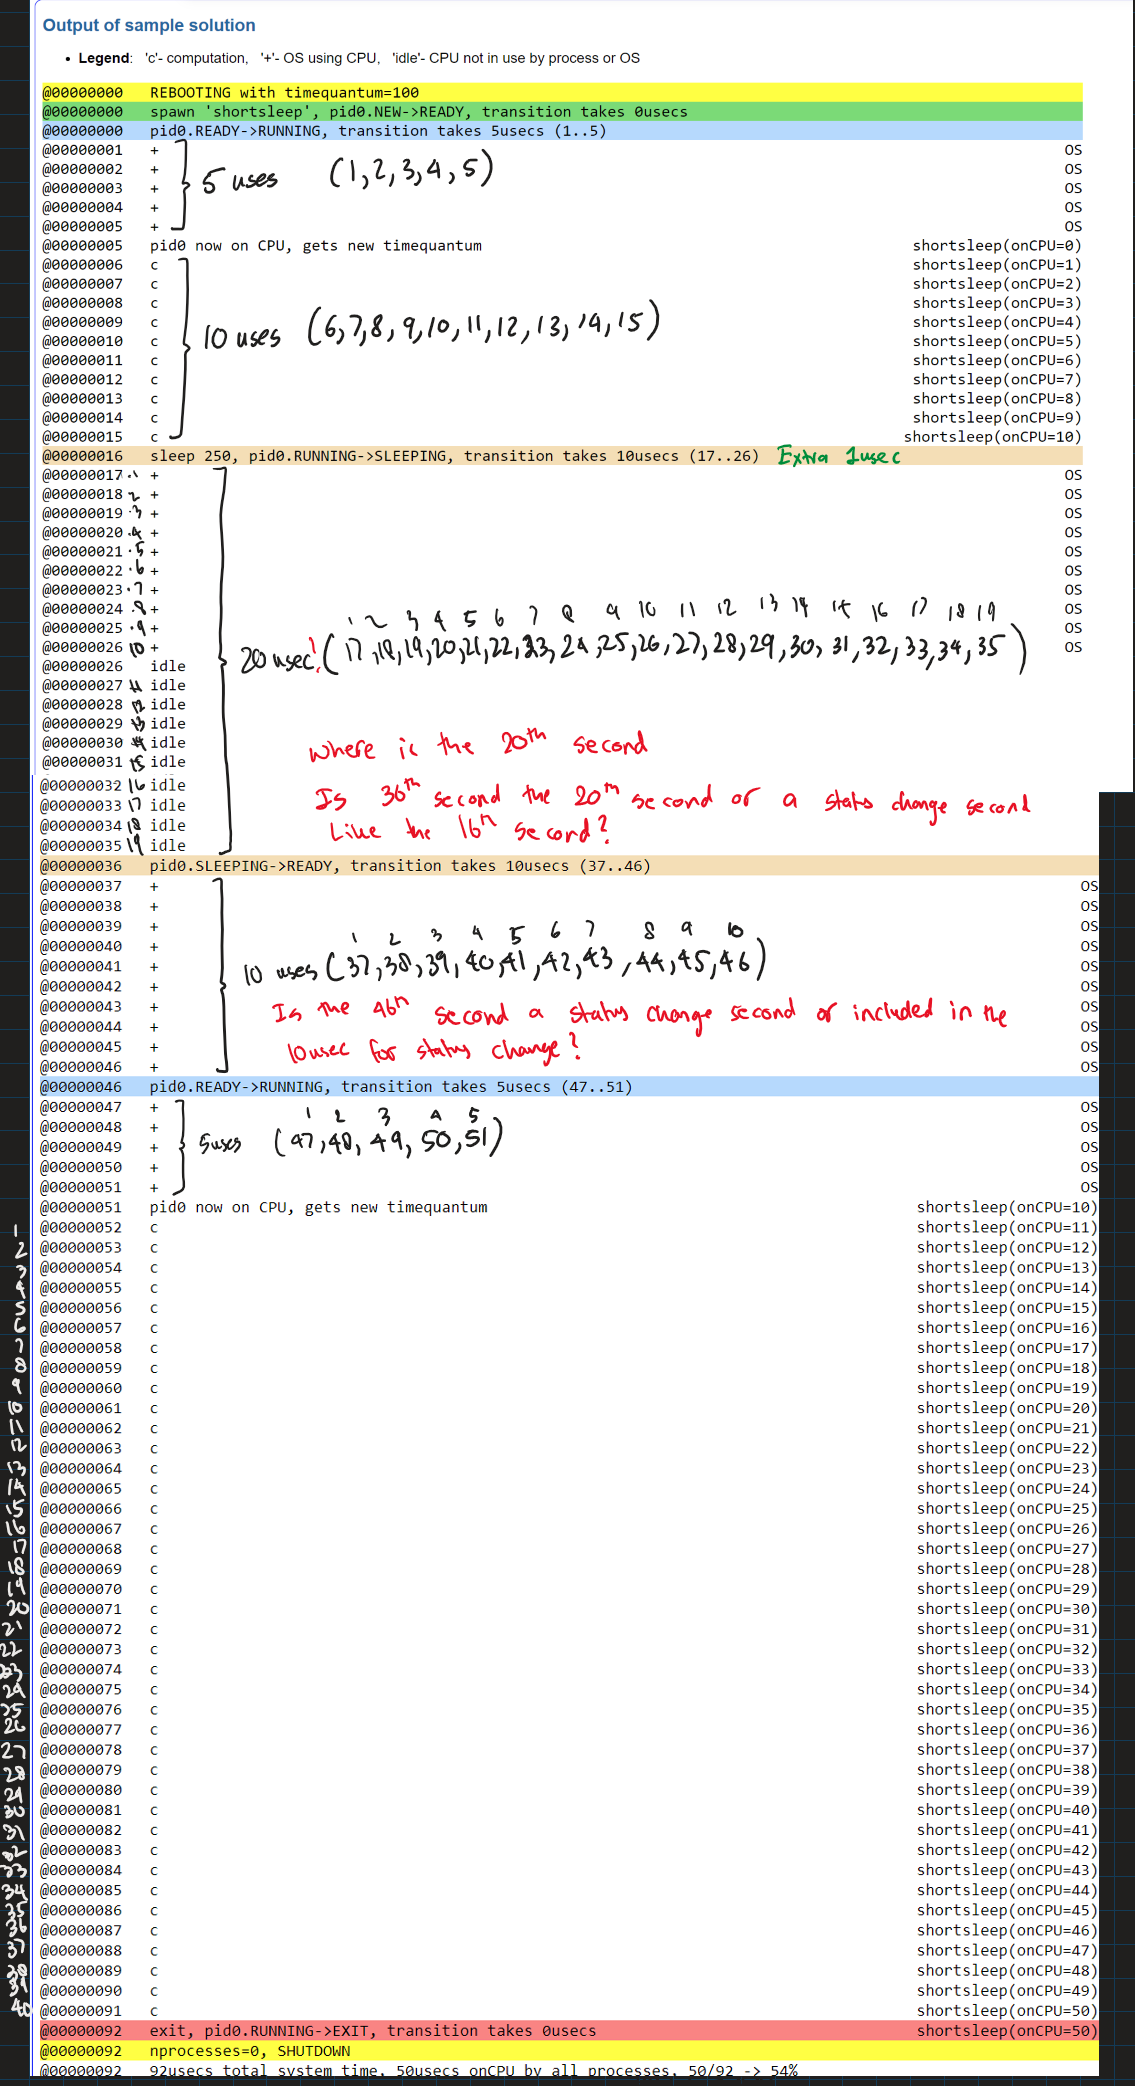 Output of sample solution
• Legend: 'c'- computation, '+'- OS using CPU, 'idle'- CPU not in use by process or OS
@00000000 REBOOTING with timequantum=100
@00000000 spawn 'shortsleep', pid0.NEW->READY, transition takes 0usecs
@00000000 pid0.READY->RUNNING, transition takes 5usecs (1..5)
@00000001 + OS
@00000002 + OS
@00000003 + OS
@00000004 + OS
@00000005 + OS
5 uses (1,2,3,4,5)
@00000005 pid0 now on CPU, gets new timequantum shortsleep(onCPU=0)
@00000006 c shortsleep(onCPU=1)
@00000007 c shortsleep(onCPU=2)
@00000008 c shortsleep(onCPU=3)
@00000009 c shortsleep(onCPU=4)
@00000010 c shortsleep(onCPU=5)
@00000011 c shortsleep(onCPU=6)
@00000012 c shortsleep(onCPU=7)
@00000013 c shortsleep(onCPU=8)
@00000014 c shortsleep(onCPU=9)
@00000015 c shortsleep(onCPU=10)
10 uses (6,7,8,9,10,11,12,13,14,15)
@00000016 sleep 250, pid0.RUNNING->SLEEPING, transition takes 10usecs (17..26) Extra 1usec
@00000017 1 + OS
@00000018 2 + OS
@00000019 3 + OS
@00000020 4 + OS
@00000021 5 + OS
@00000022 6 + OS
@00000023 7 + OS
@00000024 8 + OS
@00000025 9 + OS
@00000026 10 + OS
@00000026 idle
@00000027 11 idle
@00000028 12 idle
@00000029 13 idle
@00000030 14 idle
@00000031 15 idle
@00000032 16 idle
@00000033 17 idle
@00000034 18 idle
@00000035 19 idle
1 2 3 4 5 6 7 8 9 10 11 12 13 14 15 16 17 18 19
20 usec! (17,18,19,20,21,22,23,24,25,26,27,28,29,30,31,32,33,34,35)
Where is the 20th second
Is 36th second the 20th second or a status change second
Like the 16th second?
@00000036 pid0.SLEEPING->READY, transition takes 10usecs (37..46)
@00000037 + OS
@00000038 + OS
@00000039 + OS
@00000040 + OS
@00000041 + OS
@00000042 + OS
@00000043 + OS
@00000044 + OS
@00000045 + OS
@00000046 + OS
1 2 3 4 5 6 7 8 9 10
10 uses (37,38,39,40,41,42,43,44,45,46)
Is the 46th second a status change second or included in the
10usec for status change?
@00000046 pid0.READY->RUNNING, transition takes 5usecs (47..51)
@00000047 + OS
@00000048 + OS
@00000049 + OS
@00000050 + OS
@00000051 + OS
1 2 3 4 5
5uses (47,48,49,50,51)
@00000051 pid0 now on CPU, gets new timequantum shortsleep(onCPU=10)
1 @00000052 c shortsleep(onCPU=11)
2 @00000053 c shortsleep(onCPU=12)
3 @00000054 c shortsleep(onCPU=13)
4 @00000055 c shortsleep(onCPU=14)
5 @00000056 c shortsleep(onCPU=15)
6 @00000057 c shortsleep(onCPU=16)
7 @00000058 c shortsleep(onCPU=17)
8 @00000059 c shortsleep(onCPU=18)
9 @00000060 c shortsleep(onCPU=19)
10 @00000061 c shortsleep(onCPU=20)
11 @00000062 c shortsleep(onCPU=21)
12 @00000063 c shortsleep(onCPU=22)
13 @00000064 c shortsleep(onCPU=23)
14 @00000065 c shortsleep(onCPU=24)
15 @00000066 c shortsleep(onCPU=25)
16 @00000067 c shortsleep(onCPU=26)
17 @00000068 c shortsleep(onCPU=27)
18 @00000069 c shortsleep(onCPU=28)
19 @00000070 c shortsleep(onCPU=29)
20 @00000071 c shortsleep(onCPU=30)
21 @00000072 c shortsleep(onCPU=31)
22 @00000073 c shortsleep(onCPU=32)
23 @00000074 c shortsleep(onCPU=33)
24 @00000075 c shortsleep(onCPU=34)
25 @00000076 c shortsleep(onCPU=35)
26 @00000077 c shortsleep(onCPU=36)
27 @00000078 c shortsleep(onCPU=37)
28 @00000079 c shortsleep(onCPU=38)
29 @00000080 c shortsleep(onCPU=39)
30 @00000081 c shortsleep(onCPU=40)
31 @00000082 c shortsleep(onCPU=41)
32 @00000083 c shortsleep(onCPU=42)
33 @00000084 c shortsleep(onCPU=43)
34 @00000085 c shortsleep(onCPU=44)
35 @00000086 c shortsleep(onCPU=45)
36 @00000087 c shortsleep(onCPU=46)
37 @00000088 c shortsleep(onCPU=47)
38 @00000089 c shortsleep(onCPU=48)
39 @00000090 c shortsleep(onCPU=49)
40 @00000091 c shortsleep(onCPU=50)
@00000092 exit, pid0.RUNNING->EXIT, transition takes 0usecs shortsleep(onCPU=50)
@00000092 nprocesses=0, SHUTDOWN
@00000092 92usecs total system time, 50usecs onCPU by all processes, 50/92 -> 54%